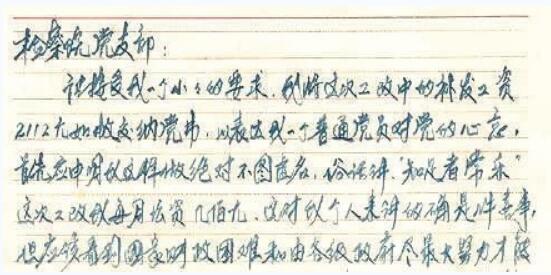 检察院党支部：
请接受我一个小小的要求，我将这次工改中的补发工资
2112元如数交纳党费，以表达我一个普通党员对党的心意，
首先应申明我这样做绝对不图虚名，俗话讲“知足者常乐”
这次工改我每月法资几佰元，这对我个人来讲的确是件喜事，
但应该看到国家财政困难和由各级政府尽最大努力才被